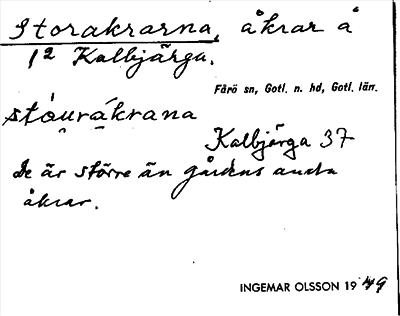 Storakrarna, åkrar å
1² Kalbjärga.
Fårö sn, Gotl. n. hd, Gotl. län.
stóurákrana
Kalbjärga 37
De är större än gårdens andra
åkrar.
INGEMAR OLSSON 1949